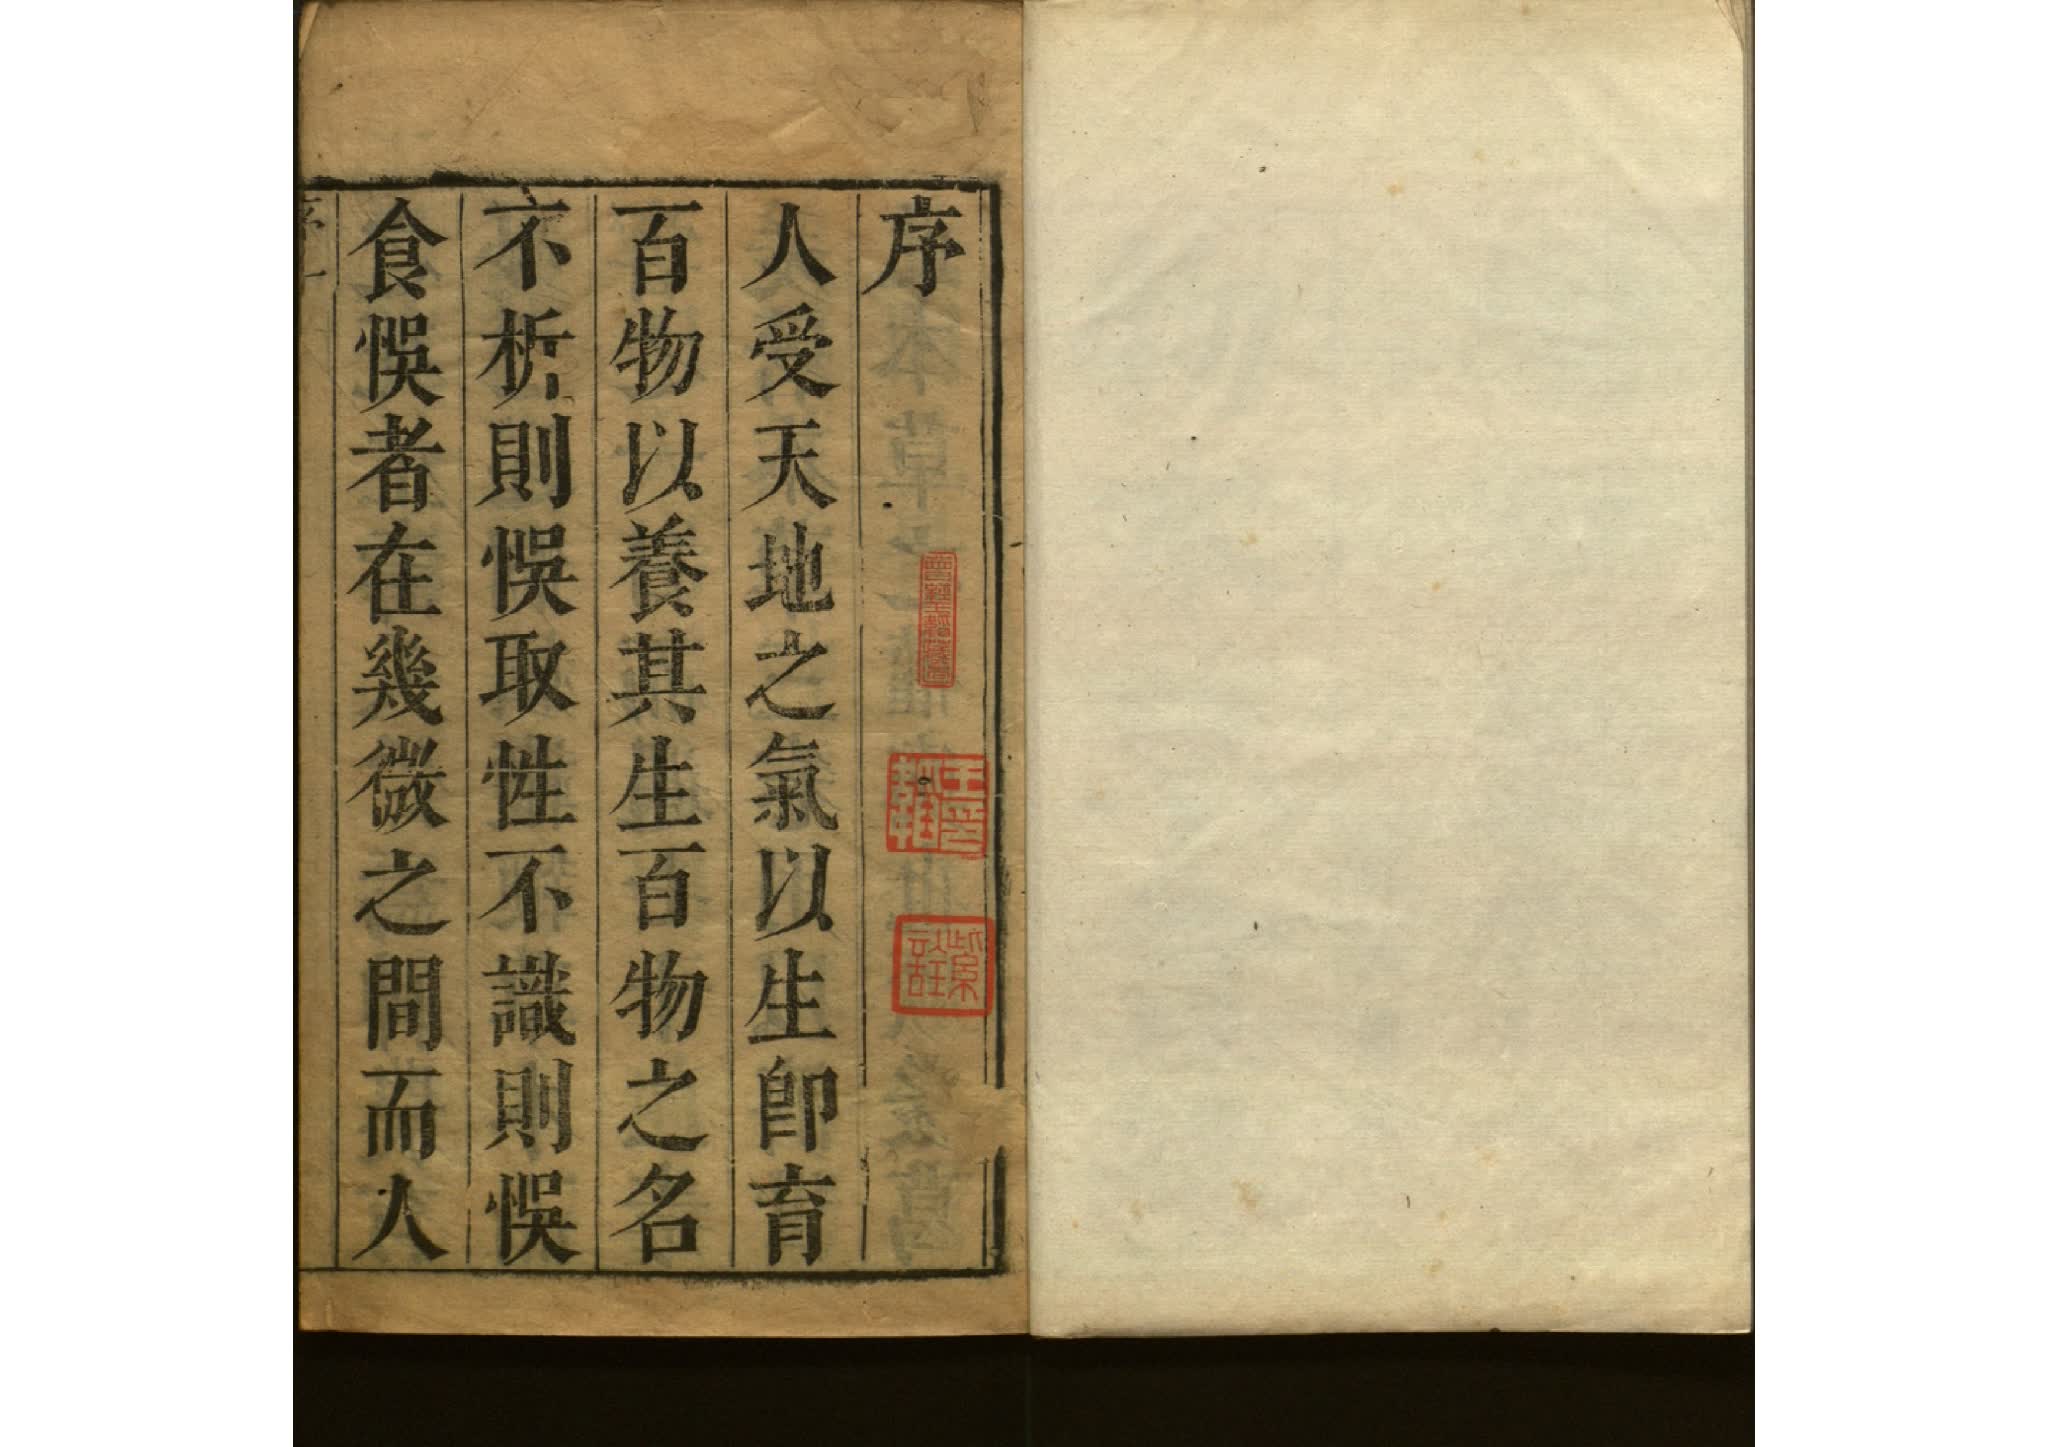 序
人受天地之氣以生卽育
百物以養其生百物之名
不析則悞取性不識則悞
食悞者在幾微之間而人
序 一